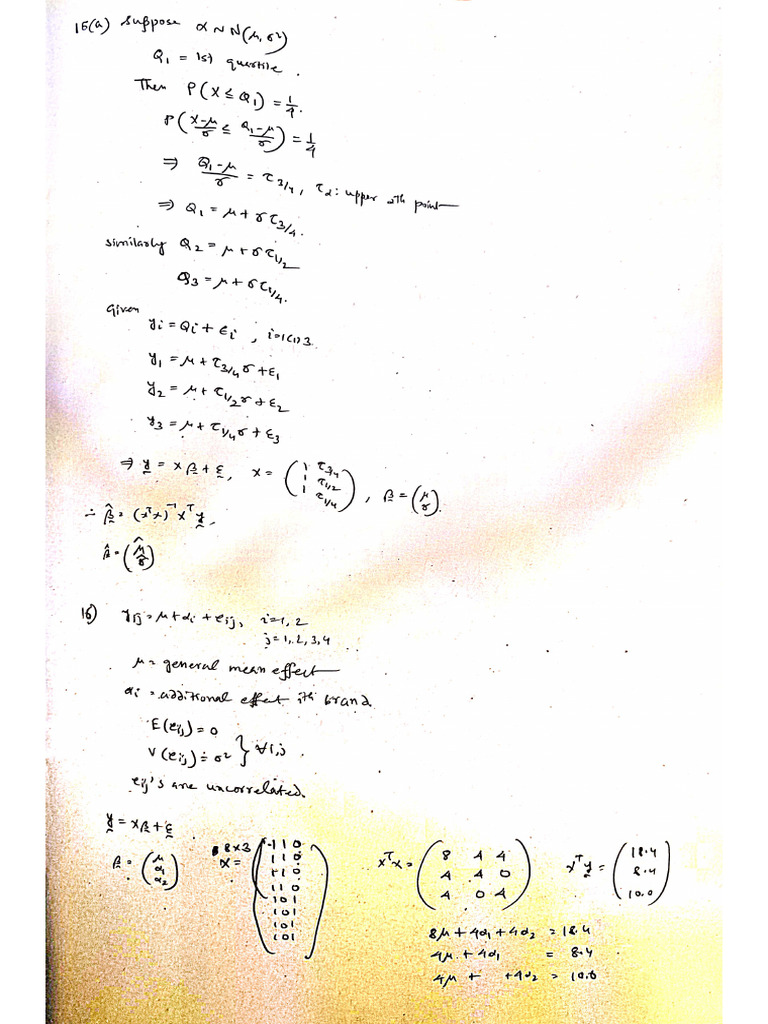 15(a) Suppose α ~ N(μ, σ²)
Q₁ = 1st quartile.
Then P(X ≤ Q₁) = 1/4.
P((X-μ)/σ ≤ (Q₁-μ)/σ) = 1/4
⇒ (Q₁-μ)/σ = τ_{3/4}, τ_α: upper αth point
⇒ Q₁ = μ + σ τ_{3/4}.
Similarly Q₂ = μ + σ τ_{1/2}
Q₃ = μ + σ τ_{1/4}.
Given
y_i = Q_i + ε_i, i=1(1)3
y₁ = μ + τ_{3/4} σ + ε₁
y₂ = μ + τ_{1/2} σ + ε₂
y₃ = μ + τ_{1/4} σ + ε₃
⇒ y = xβ + ε, x = (1 τ_{3/4} 1 τ_{1/2} 1 τ_{1/4}), β = (μ σ).
∴ β̂ = (xᵀx)⁻¹ xᵀ y,
β̂ = (μ̂ σ̂)
16) y_ij = μ + α_i + e_ij, i=1, 2
j=1, 2, 3, 4
μ = general mean effect
α_i = additional effect ith brand.
E(e_ij) = 0
V(e_ij) = σ² } ∀ i,j.
e_ij's are uncorrelated.
y = xβ + ε
β = (μ α₁ α₂) 8×3 x = (1 1 0 1 1 0 1 1 0 1 1 0 1 0 1 1 0 1 1 0 1 1 0 1) xᵀx = (8 4 4 4 4 0 4 0 4) xᵀy = (18.4 8.4 10.0)
8μ + 4α₁ + 4α₂ = 18.4
4μ + 4α₁ = 8.4
4μ + +4α₂ = 10.0